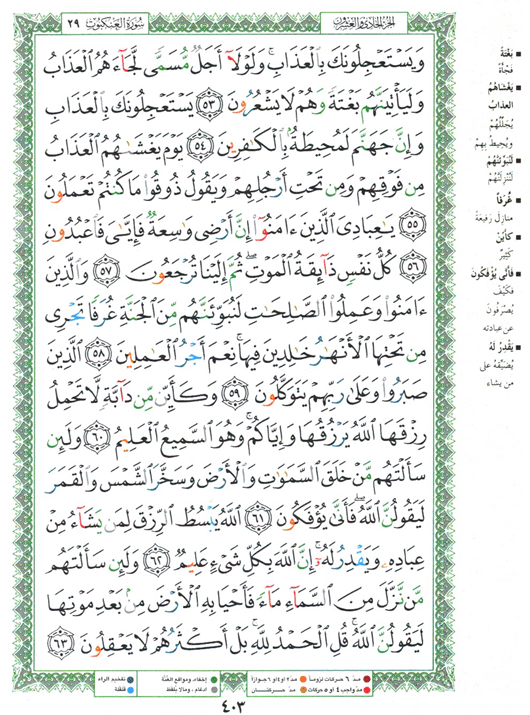 الجزء الحادي والعشرون
سورة العنكبوت ٢٩
وَيَسْتَعْجِلُونَكَ بِٱلْعَذَابِ ۚ وَلَوْلَآ أَجَلٌ مُّسَمًّى لَّجَآءَهُمُ ٱلْعَذَابُ
وَلَيَأْتِيَنَّهُم بَغْتَةً وَهُمْ لَا يَشْعُرُونَ ٥٣ يَسْتَعْجِلُونَكَ بِٱلْعَذَابِ
وَإِنَّ جَهَنَّمَ لَمُحِيطَةٌۢ بِٱلْكَٰفِرِينَ ٥٤ يَوْمَ يَغْشَىٰهُمُ ٱلْعَذَابُ
مِن فَوْقِهِمْ وَمِن تَحْتِ أَرْجُلِهِمْ وَيَقُولُ ذُوقُوا۟ مَا كُنتُمْ تَعْمَلُونَ
٥٥ يَٰعِبَادِىَ ٱلَّذِينَ ءَامَنُوٓا۟ إِنَّ أَرْضِى وَٰسِعَةٌ فَإِيَّٰىَ فَٱعْبُدُونِ
٥٦ كُلُّ نَفْسٍ ذَآئِقَةُ ٱلْمَوْتِ ۖ ثُمَّ إِلَيْنَا تُرْجَعُونَ ٥٧ وَٱلَّذِينَ
ءَامَنُوا۟ وَعَمِلُوا۟ ٱلصَّٰلِحَٰتِ لَنُبَوِّئَنَّهُم مِّنَ ٱلْجَنَّةِ غُرَفًا تَجْرِى
مِن تَحْتِهَا ٱلْأَنْهَٰرُ خَٰلِدِينَ فِيهَا ۚ نِعْمَ أَجْرُ ٱلْعَٰمِلِينَ ٥٨ ٱلَّذِينَ
صَبَرُوا۟ وَعَلَىٰ رَبِّهِمْ يَتَوَكَّلُونَ ٥٩ وَكَأَيِّن مِّن دَآبَّةٍ لَّا تَحْمِلُ
رِزْقَهَا ٱللَّهُ يَرْزُقُهَا وَإِيَّاكُمْ ۚ وَهُوَ ٱلسَّمِيعُ ٱلْعَلِيمُ ٦٠ وَلَئِن
سَأَلْتَهُم مَّنْ خَلَقَ ٱلسَّمَٰوَٰتِ وَٱلْأَرْضَ وَسَخَّرَ ٱلشَّمْسَ وَٱلْقَمَرَ
لَيَقُولُنَّ ٱللَّهُ ۖ فَأَنَّىٰ يُؤْفَكُونَ ٦١ ٱللَّهُ يَبْسُطُ ٱلرِّزْقَ لِمَن يَشَآءُ مِنْ
عِبَادِهِۦ وَيَقْدِرُ لَهُۥٓ ۚ إِنَّ ٱللَّهَ بِكُلِّ شَىْءٍ عَلِيمٌ ٦٢ وَلَئِن سَأَلْتَهُم
مَّن نَّزَّلَ مِنَ ٱلسَّمَآءِ مَآءً فَأَحْيَا بِهِ ٱلْأَرْضَ مِنۢ بَعْدِ مَوْتِهَا
لَيَقُولُنَّ ٱللَّهُ ۚ قُلِ ٱلْحَمْدُ لِلَّهِ ۚ بَلْ أَكْثَرُهُمْ لَا يَعْقِلُونَ ٦٣
بَغْتَةً
فَجْأَةً
يَغْشَاهُمُ
العذابُ
يُجَلِّلُهُمْ
ويُحِيطُ بِهِمْ
لَنُبَوِّئَنَّهُمْ
لَنُنْزِلَنَّهُمْ
غُرَفاً
منازلَ رفيعةً
كأيّن
كثيرٌ
فأنّى يُؤفكون
فكيفَ
يُصْرَفُونَ
عن عبادته
يَقْدِرُ لَهُ
يُضَيِّقُه على
من يشاء
مدّ ٦ حركات لزوماً
مدّ ٢ أو ٤ أو ٦ جوازاً
إخفاء، ومواقع الغُنَّة
تفخيم الراء
مدّ واجب ٤ أو ٥ حركات
مدّ حركتان
إدغام، وما لا يُلفظ
قلقلة
٤٠٣